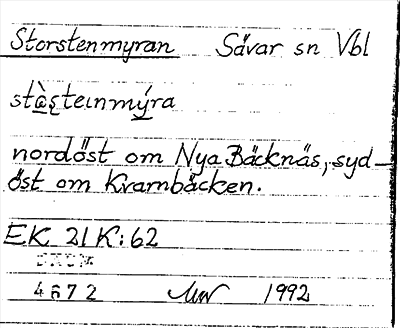 Storstenmyran Sävar sn Vbl
stὰşteınmýra
nordöst om Nya Bäcknäs, syd-
öst om Kvarnbäcken.
EK 21K:62
4672 1992